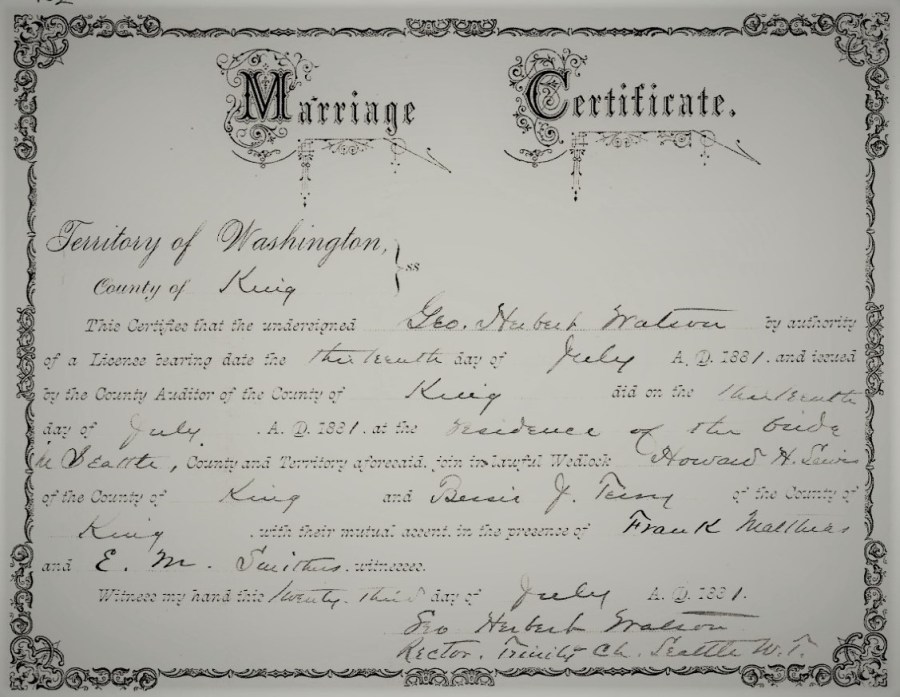 Marriage Certificate.
Territory of Washington, } ss
County of King
This Certifies that the undersigned Geo. Herbert Watson by authority
of a License bearing date the thirteenth day of July A. D. 1881. and issued
by the County Auditor of the County of King did on the thirteenth
day of July . A. D. 1881. at the residence of the bride
in Seattle, County and Territory aforesaid, join in lawful Wedlock Howard H. Lewis
of the County of King and Bessie J. Terry of the County of
King , with their mutual assent, in the presence of Frank Matthias
and E. M. Smithers. witnesses.
Witness my hand this twenty-third day of July A. D. 1881.
Geo Herbert Watson
Rector. Trinity Ch. Seattle W. T.